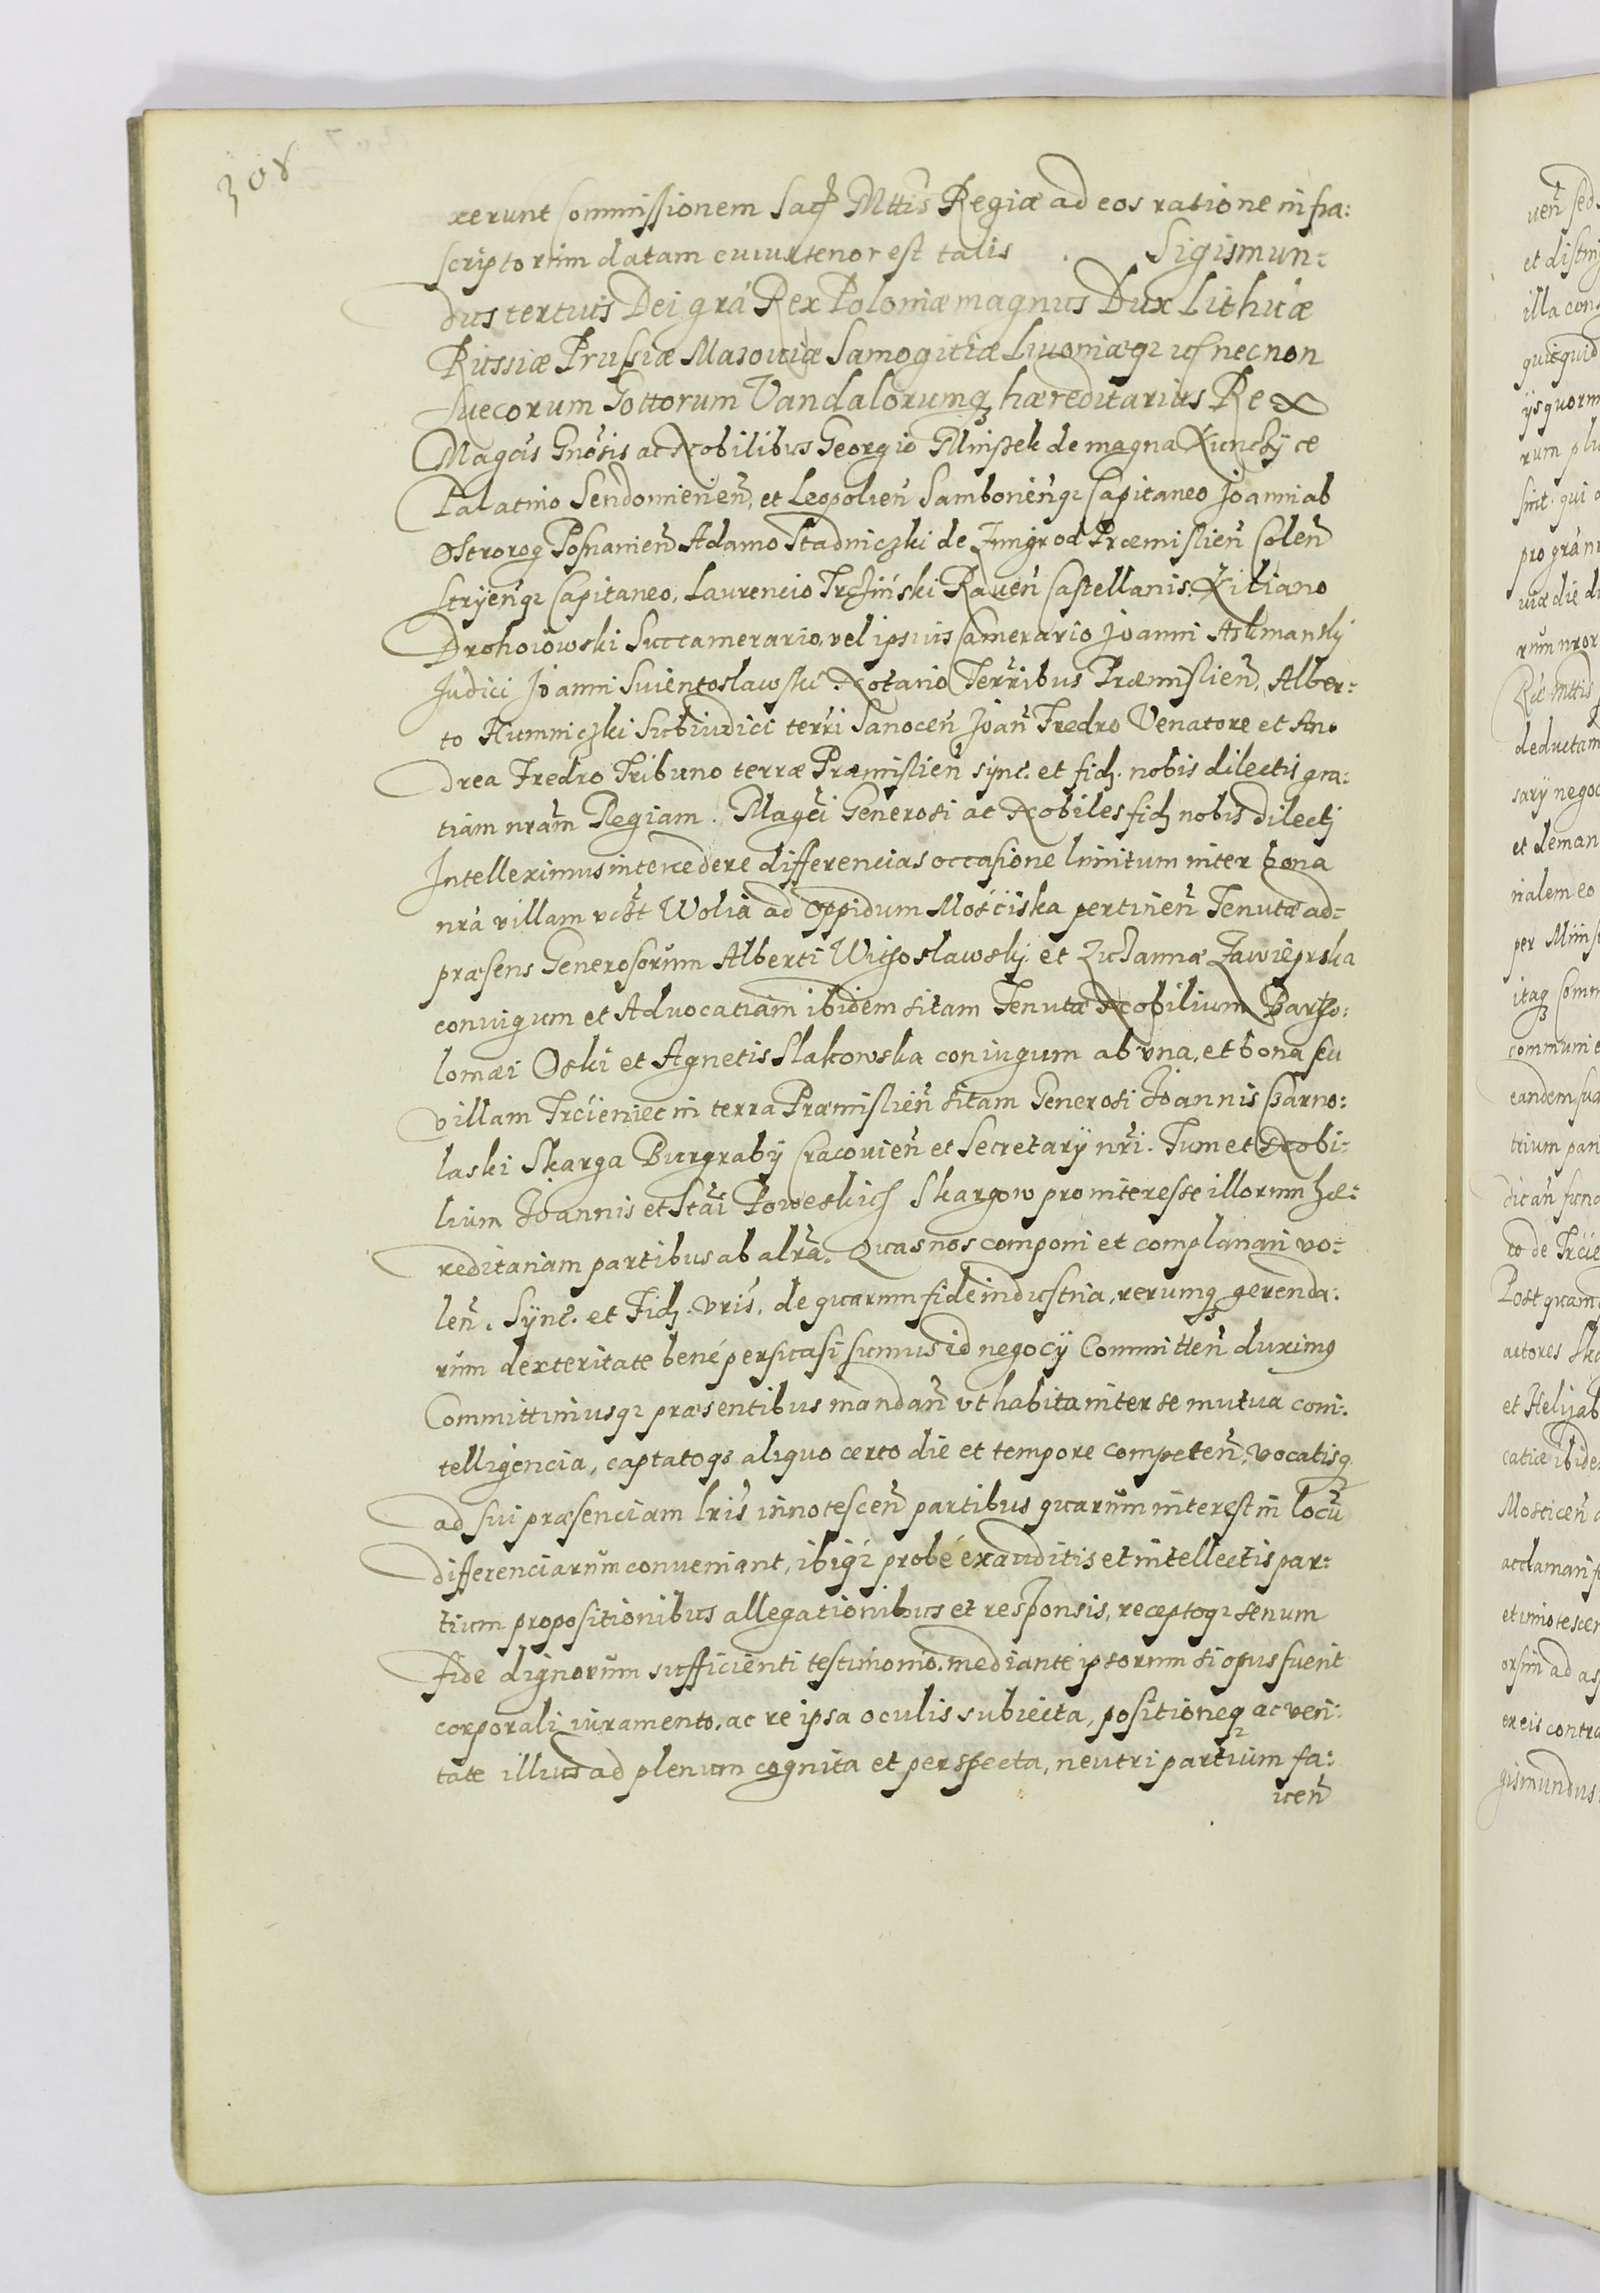 308
xerunt Commissionem Sac Mttis Regiæ ad eos ratione infra:
scriptorum datam cuius tenor est talis . Sigismun:
dus tertius Dei grá Rex Poloniæ magnus Dux Lithuæ
Russiæ Prussiæ Masouiæ Samogitiæ Liuoniæq necnon
Suecorum Gottorum Vandalorumq hæreditarius Rex
Magcis Gnosis ac Nobilibus Georgio Mnissek de magna Kunczyce
Palatino Sendomirien, et Leopolien Samborienq Capitaneo Joanni ab
Ostrorog Posnanien Adamo Stadniczki de Zmigrod Præmislien Colen
Stryenq Capitaneo, Laurencio Trzinski Rauen Castellanis. Kiliano
Drohoiowski Succamerario, vel ipsius Camerario Joanni Askmansky
Judici Joanni Swientoslawski Notario Terribus Præmislien, Alber:
to Humniczki Subiudici terri Sanocen Joan Fredro Venatore et An:
drea Fredro Tribuno terræ Præmislien sync. et fid. nobis dilectis gra:
tiam nram Regiam. Magci Generosi ac Nobiles fid nobis dilecti
Intelleximus intercedere differencias occasione limitum inter bona
nrá villam Wolia ad oppidum Mościska pertinen Tenutæ ad:
præsens Generosorum Alberti Witosławsky et Zusannæ Zawieprska
coniugum et Aduocatiam ibidem sitam Tenutæ Nobilium Bartho:
lomæi Oski et Agnetis Slakowska coniugum ab vna, et bona seu
villam Trcieniec in terra Præmislien sitam Generosi Joannis Czarno:
laski Skarga Burgraby Cracouien et Secretary nri. Tum et Nobi:
lium Joannis et Stai Poweskich Skargow pro interesse illorum hæ:
reditariam partibus ab altra. Quas nos componi et complanari vo:
len. Sync. et Fid. vris, de quarum fide industria, rerumq gerenda:
rum dexteritate bené persuasi sumus id negocy Committen duximq
Committimusq præsentibus mandan vt habita inter se mutua coni:
telligencia, captatoq aliquo certo die et tempore competen, vocatisq
ad sui præsenciam lris innotescen partibus quarum interest in locu
differenciarum conueniant, ibiq probé exauditis et intellectis par:
tium propositionibus allegationibus et responsis, receptoq senum
fide dignorum sufficienti testimonio, mediante ipsorum si opus fuerit
corporali iuramento, ac re ipsa oculis subiecta, positioneq ac veri:
tate illius ad plenum cognita et perspecta, neutri partium fa:
uen